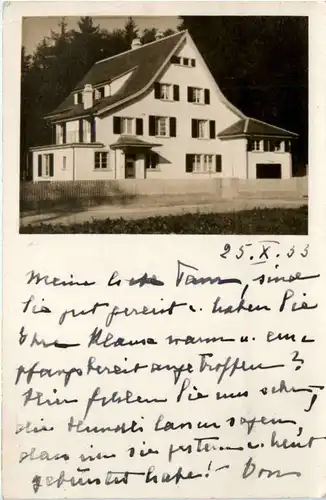 25.X.33
Meine liebe Tann, sind
Sie gut gereist u. haben Sie
Ihre Klause warm u. em-
pfangsbereit angetroffen?
Hier fehlen Sie uns sehr,
die Hundli lassen sagen,
dass sie gestern u. heut
gebürstet habe!